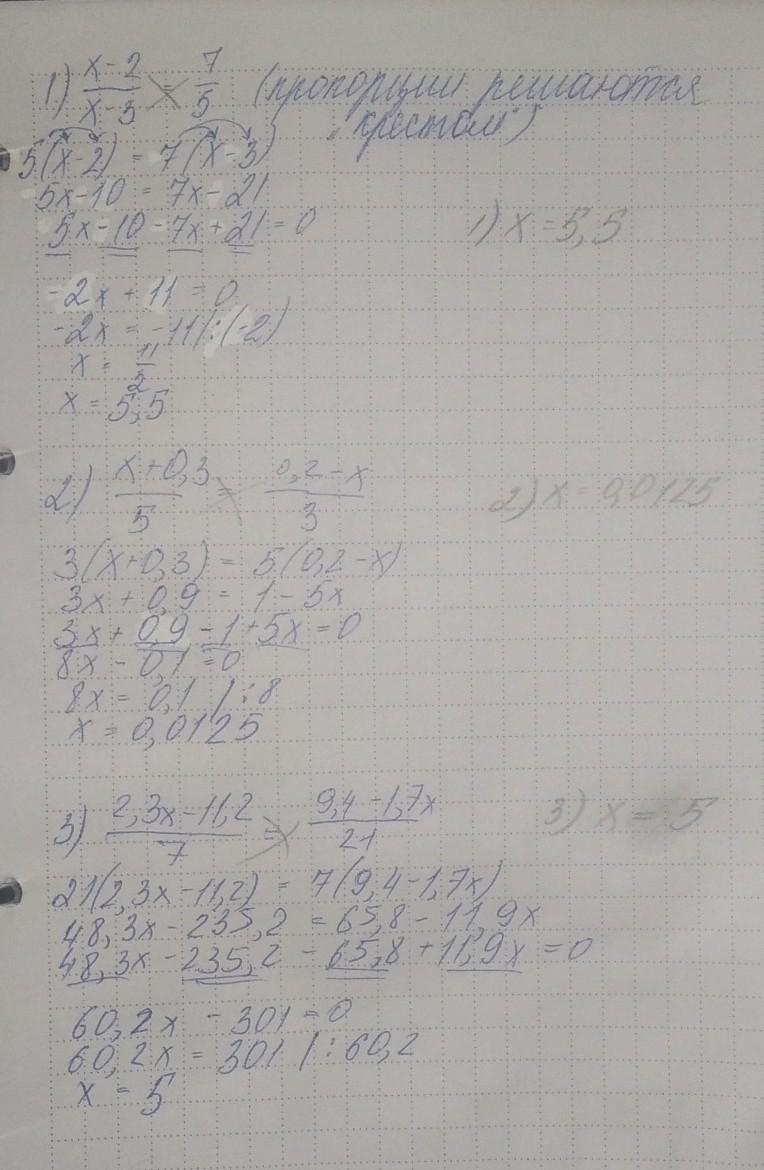 1) (x-2)/(x-3) = 7/5 (пропорции решаются
"крестом")
5(x-2) = 7(x-3)
5x-10 = 7x-21
5x-10-7x+21=0
1) x=5,5
-2x+11=0
-2x=-11|:(-2)
x = 11/2
x = 5,5
2) (x+0,3)/5 = (0,2-x)/3
2) x=0,0125
3(x+0,3) = 5(0,2-x)
3x+0,9 = 1-5x
3x+0,9-1+5x=0
8x-0,1=0
8x=0,1 |:8
x=0,0125
3) (2,3x-11,2)/7 = (9,4-1,7x)/21
3) x=5
21(2,3x-11,2) = 7(9,4-1,7x)
48,3x-235,2 = 65,8-11,9x
48,3x-235,2-65,8+11,9x=0
60,2x-301=0
60,2x=301 |:60,2
x=5